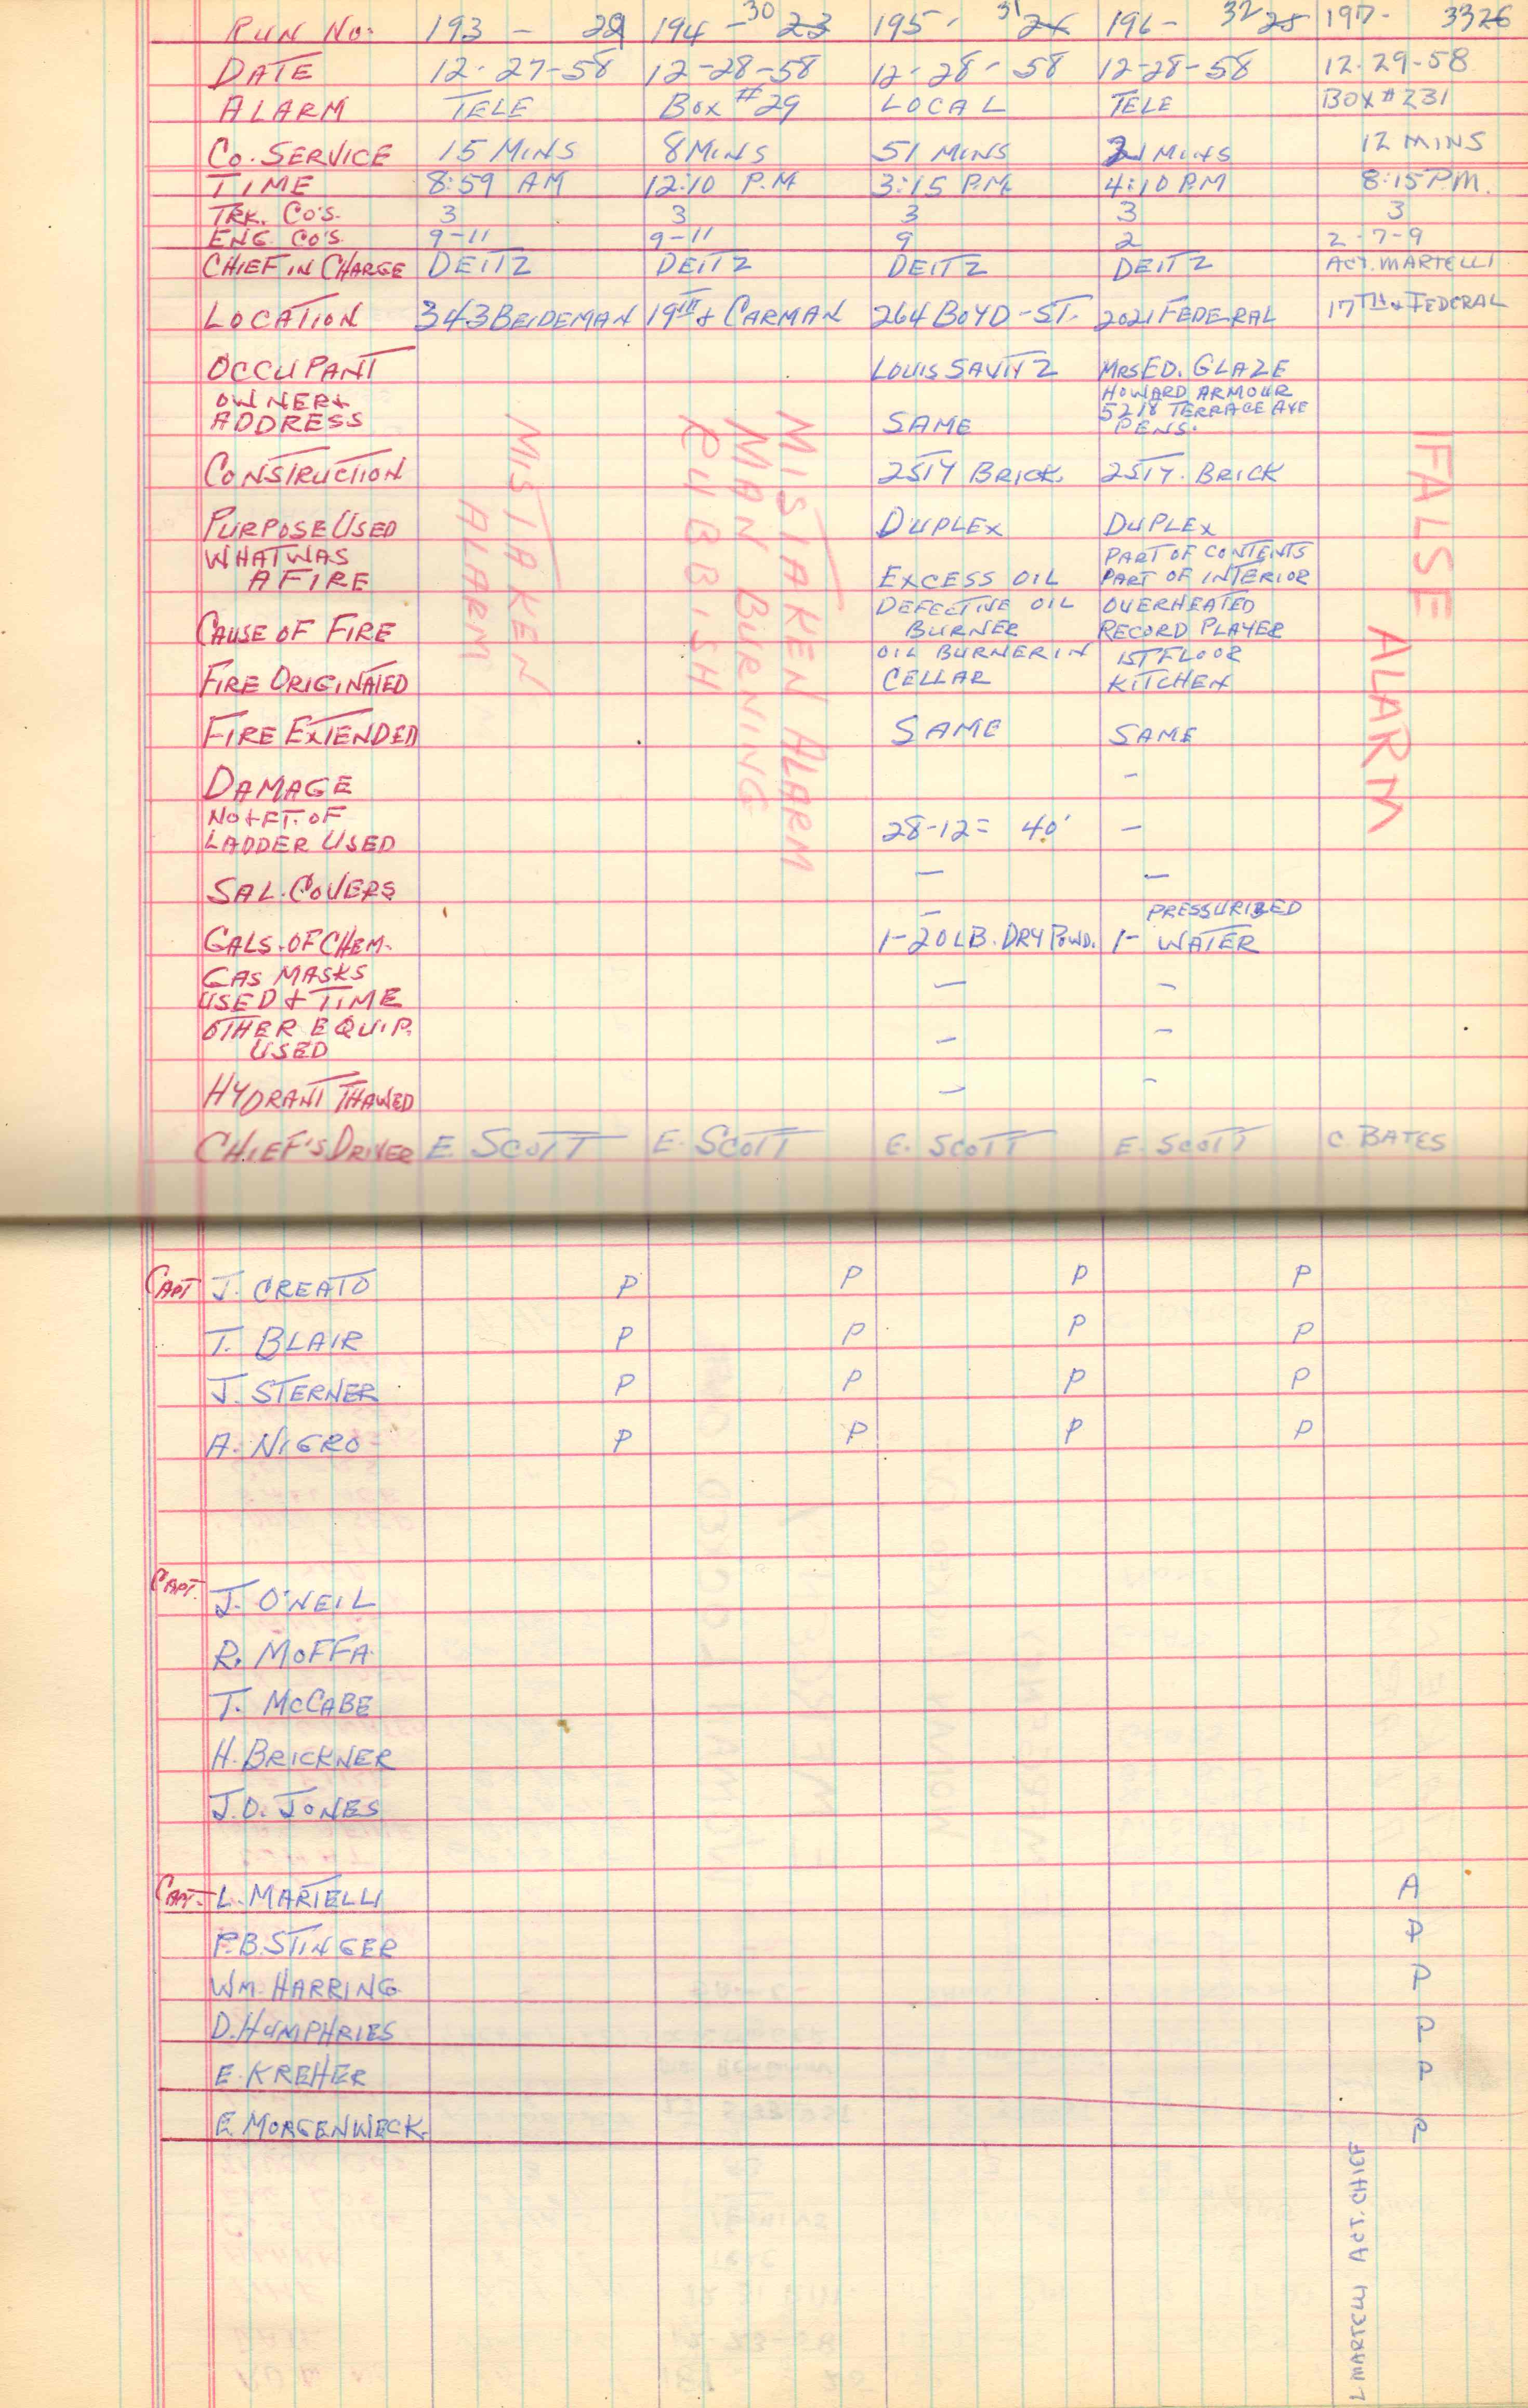 RUN NO. 193 - 29 194 - 30 23 195 - 31 24 196 - 32 25 197 - 33 26
DATE 12-27-58 12-28-58 12-28-58 12-28-58 12-29-58
ALARM TELE BOX #29 LOCAL TELE BOX #231
CO. SERVICE 15 MINS 8 MINS 51 MINS 21 MINS 12 MINS
TIME 8:59 AM 12:10 P.M 3:15 P.M. 4:10 PM 8:15 P.M.
TRK. CO'S. 3 3 3 3 3
ENG. CO'S 9-11 9-11 9 2 2-7-9
CHIEF IN CHARGE DEITZ DEITZ DEITZ DEITZ ACT. MARTELLI
LOCATION 343 BEIDEMAN 19TH & CARMAN 264 BOYD-ST. 2021 FEDERAL 17TH & FEDERAL
OCCUPANT LOUIS SAVITZ MRS ED. GLAZE
OWNER & HOWARD ARMOUR
5218 TERRACE AVE
ADDRESS SAME PENS.
CONSTRUCTION 2 STY BRICK. 2 STY. BRICK
PURPOSE USED DUPLEX DUPLEX
WHAT WAS PART OF CONTENTS
A FIRE EXCESS OIL PART OF INTERIOR
DEFECTIVE OIL OVERHEATED
CAUSE OF FIRE BURNER RECORD PLAYER
OIL BURNER IN 1ST FLOOR
FIRE ORIGINATED CELLAR KITCHEN
FIRE EXTENDED SAME SAME
DAMAGE -
NO & FT. OF
LADDER USED 28-12 = 40' -
SAL. COVERS - -
- PRESSURIZED
GALS. OF CHEM. 1-20 LB. DRY POWD. 1- WATER
GAS MASKS
USED & TIME - -
OTHER EQUIP.
USED - -
HYDRANT THAWED - -
CHIEF'S DRIVER E. SCOTT E. SCOTT E. SCOTT E. SCOTT C. BATES
MISTAKEN
ALARM
MISTAKEN ALARM
MAN BURNING
RUBBISH
FALSE ALARM
CAPT J. CREATO P P P P
T. BLAIR P P P P
J. STERNER P P P P
A. NIGRO P P P P
CAPT. J. O'NEIL
R. MOFFA
T. MCCABE
H. BRICKNER
J.D. JONES
CAPT. L. MARTELLI A
F.B. STINGER P
WM. HARRING P
D. HUMPHRIES P
E. KREHER P
E. MORGENWECK P
L MARTELLI ACT. CHIEF